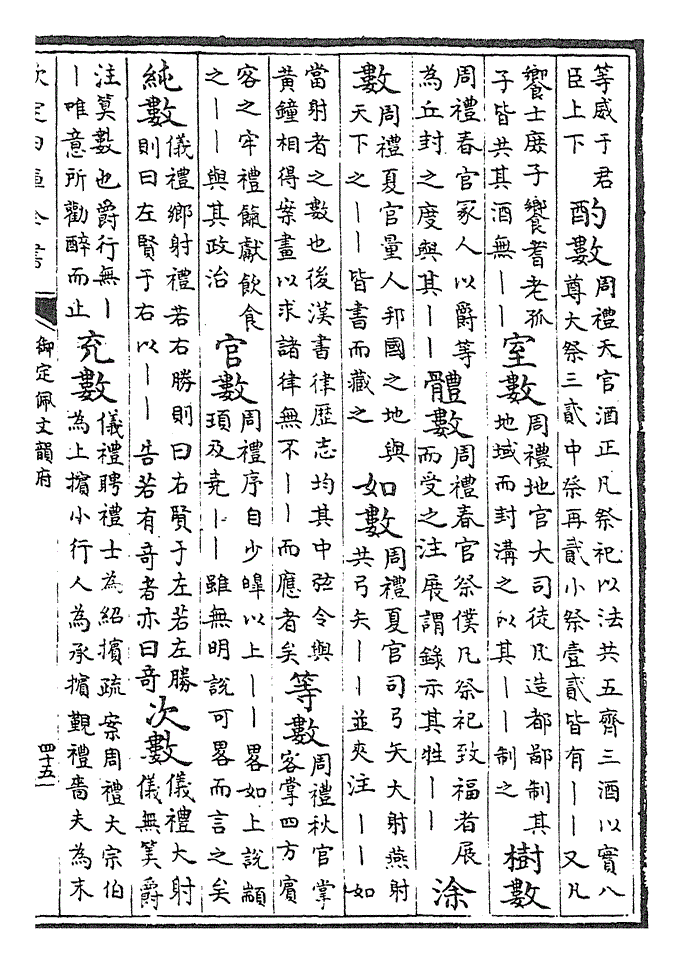 等威于君
臣上下
酌數
周禮天官酒正凡祭祀以法共五齊三酒以實八
尊大祭三貳中祭再貳小祭壹貳皆有丨丨又凡
饗士庶子饗耆老孤
子皆共其酒無丨丨
室數
周禮地官大司徒凡造都鄙制其
地域而封溝之以其丨丨制之
樹數
周禮春官冢人以爵等
為丘封之度與其丨丨
體數
周禮春官祭僕凡祭祀致福者展
而受之注展謂錄示其牲丨丨
涂
數
周禮夏官量人邦國之地與
天下之丨丨皆書而藏之
如數
周禮夏官司弓矢大射燕射
共弓矢丨丨並夾注丨丨如
當射者之數也後漢書律歷志均其中弦令與
黃鐘相得案畫以求諸律無不丨丨而應者矣
等數
周禮秋官掌
客掌四方賓
客之牢禮餼獻飲食
之丨丨與其政治
官數
周禮序自少皥以上丨丨畧如上說顓
頊及堯丨丨雖無明說可畧而言之矣
純數
儀禮鄉射禮若右勝則曰右賢于左若左勝
則曰左賢于右以丨丨告若有奇者亦曰奇
次數
儀禮大射
儀無筭爵
注筭數也爵行無丨
丨唯意所勸醉而止
充數
儀禮聘禮士為紹擯疏案周禮大宗伯
為上擯小行人為承擯覲禮嗇夫為末
欽定四庫全書
御定佩文韻府
四十五